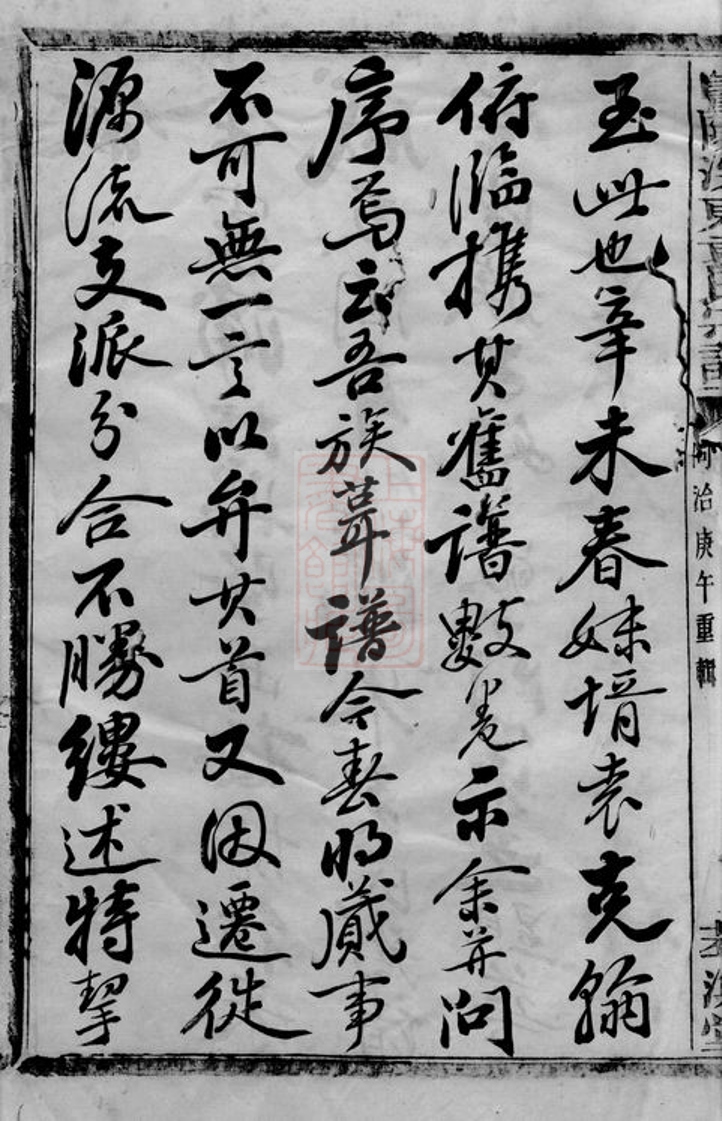 至此也辛未春妹壻袁克翰
俯臨攜其舊譜數卷示余并問
序焉云吾族葺譜今春將蕆事
不可無一言以弁其首又因遷徙
源流支派分合不勝縷述特挈
同治庚午重輯